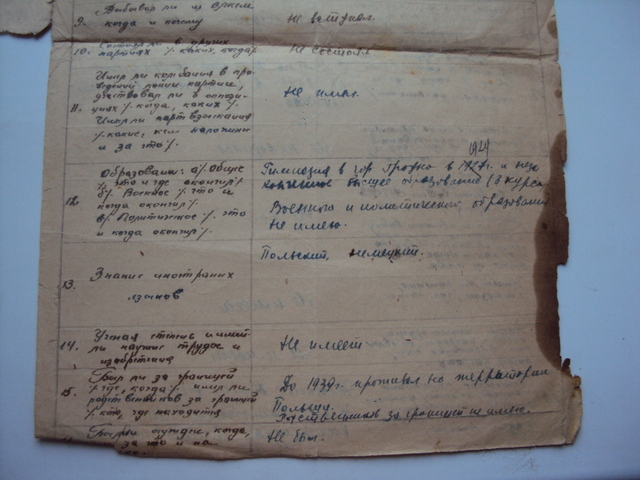 9. Выбывал ли из
когда и почему
Не вступал.
10. Состоял ли в других
партиях /. каких, когда
Не состоял
11. Имел ли колебания в про-
ведении линии партии,
участвовал ли в оппози-
циях /. когда, каких /.
Имел ли партвзыскания
/. какие, кем наложены
и за что /.
Не имел.
12. Образование: а/. Общее
/. что и где окончил /.
б/. Военное /. что и
когда окончил /.
в/. Политическое /. что
и когда окончил /.
1929
Гимназия в гор. Гродно в и неза-
конченное высшее образование (3 курса
Военного и политического образования
не имею.
13. Знание иностранных
языков
Польский, немецкий.
14. Ученая степень и имеет
ли научные труды и
изобретения
Не имеет
15. Был ли за границей
/. где, когда /. имел ли
родственников за границей
/. кто, где находится
До 1939г. проживал на территории
Польши.
Родственников за границей не имею.
Был ли судим, когда,
за что и на
Не был.